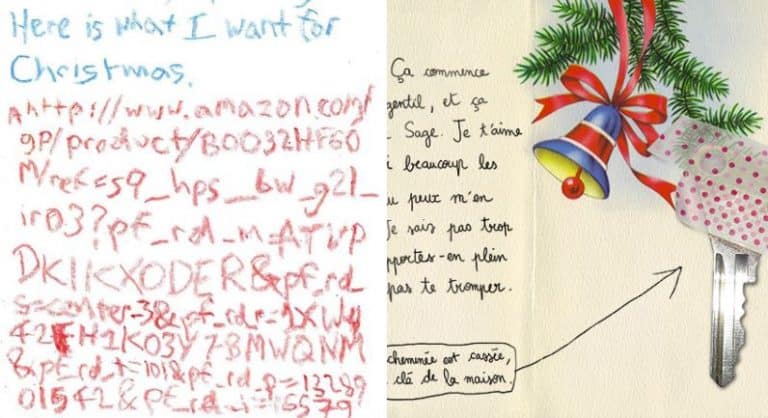 Here is what I want for
Christmas.
http://www.amazon.com/
gp/product/B0032HF60
M/ref=s9_hps_bw_g21_
ir03?pf_rd_m=ATVP
DKIKXODER&pf_rd_
s=center-3&pf_rd_r=1XWY
42FH1K03Y78MWQNM
&pf_rd_t=101&pf_rd_p=13289
01542&pf_rd_i=16579
Ça commence
gentil, et ça
Sage. Je t'aime
beaucoup les
peux m'en
Je sais pas trop
en plein
pas te tromper.
cheminée est cassée,
clé de la maison.